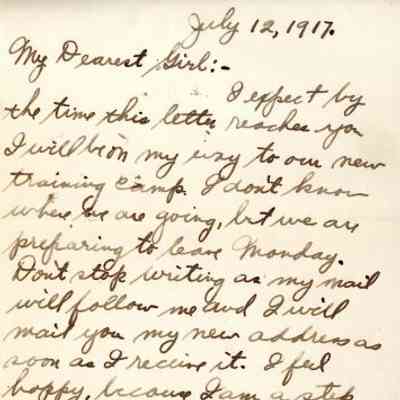 July 12, 1917.
My Dearest Girl:-
I expect by
the time this letter reaches you
I will be on my way to our new
training camp. I don't know
where we are going, but we are
preparing to leave Monday.
Don't stop writing as my mail
will follow me and I will
mail you my new address as
soon as I receive it. I feel
happy, because I am a step